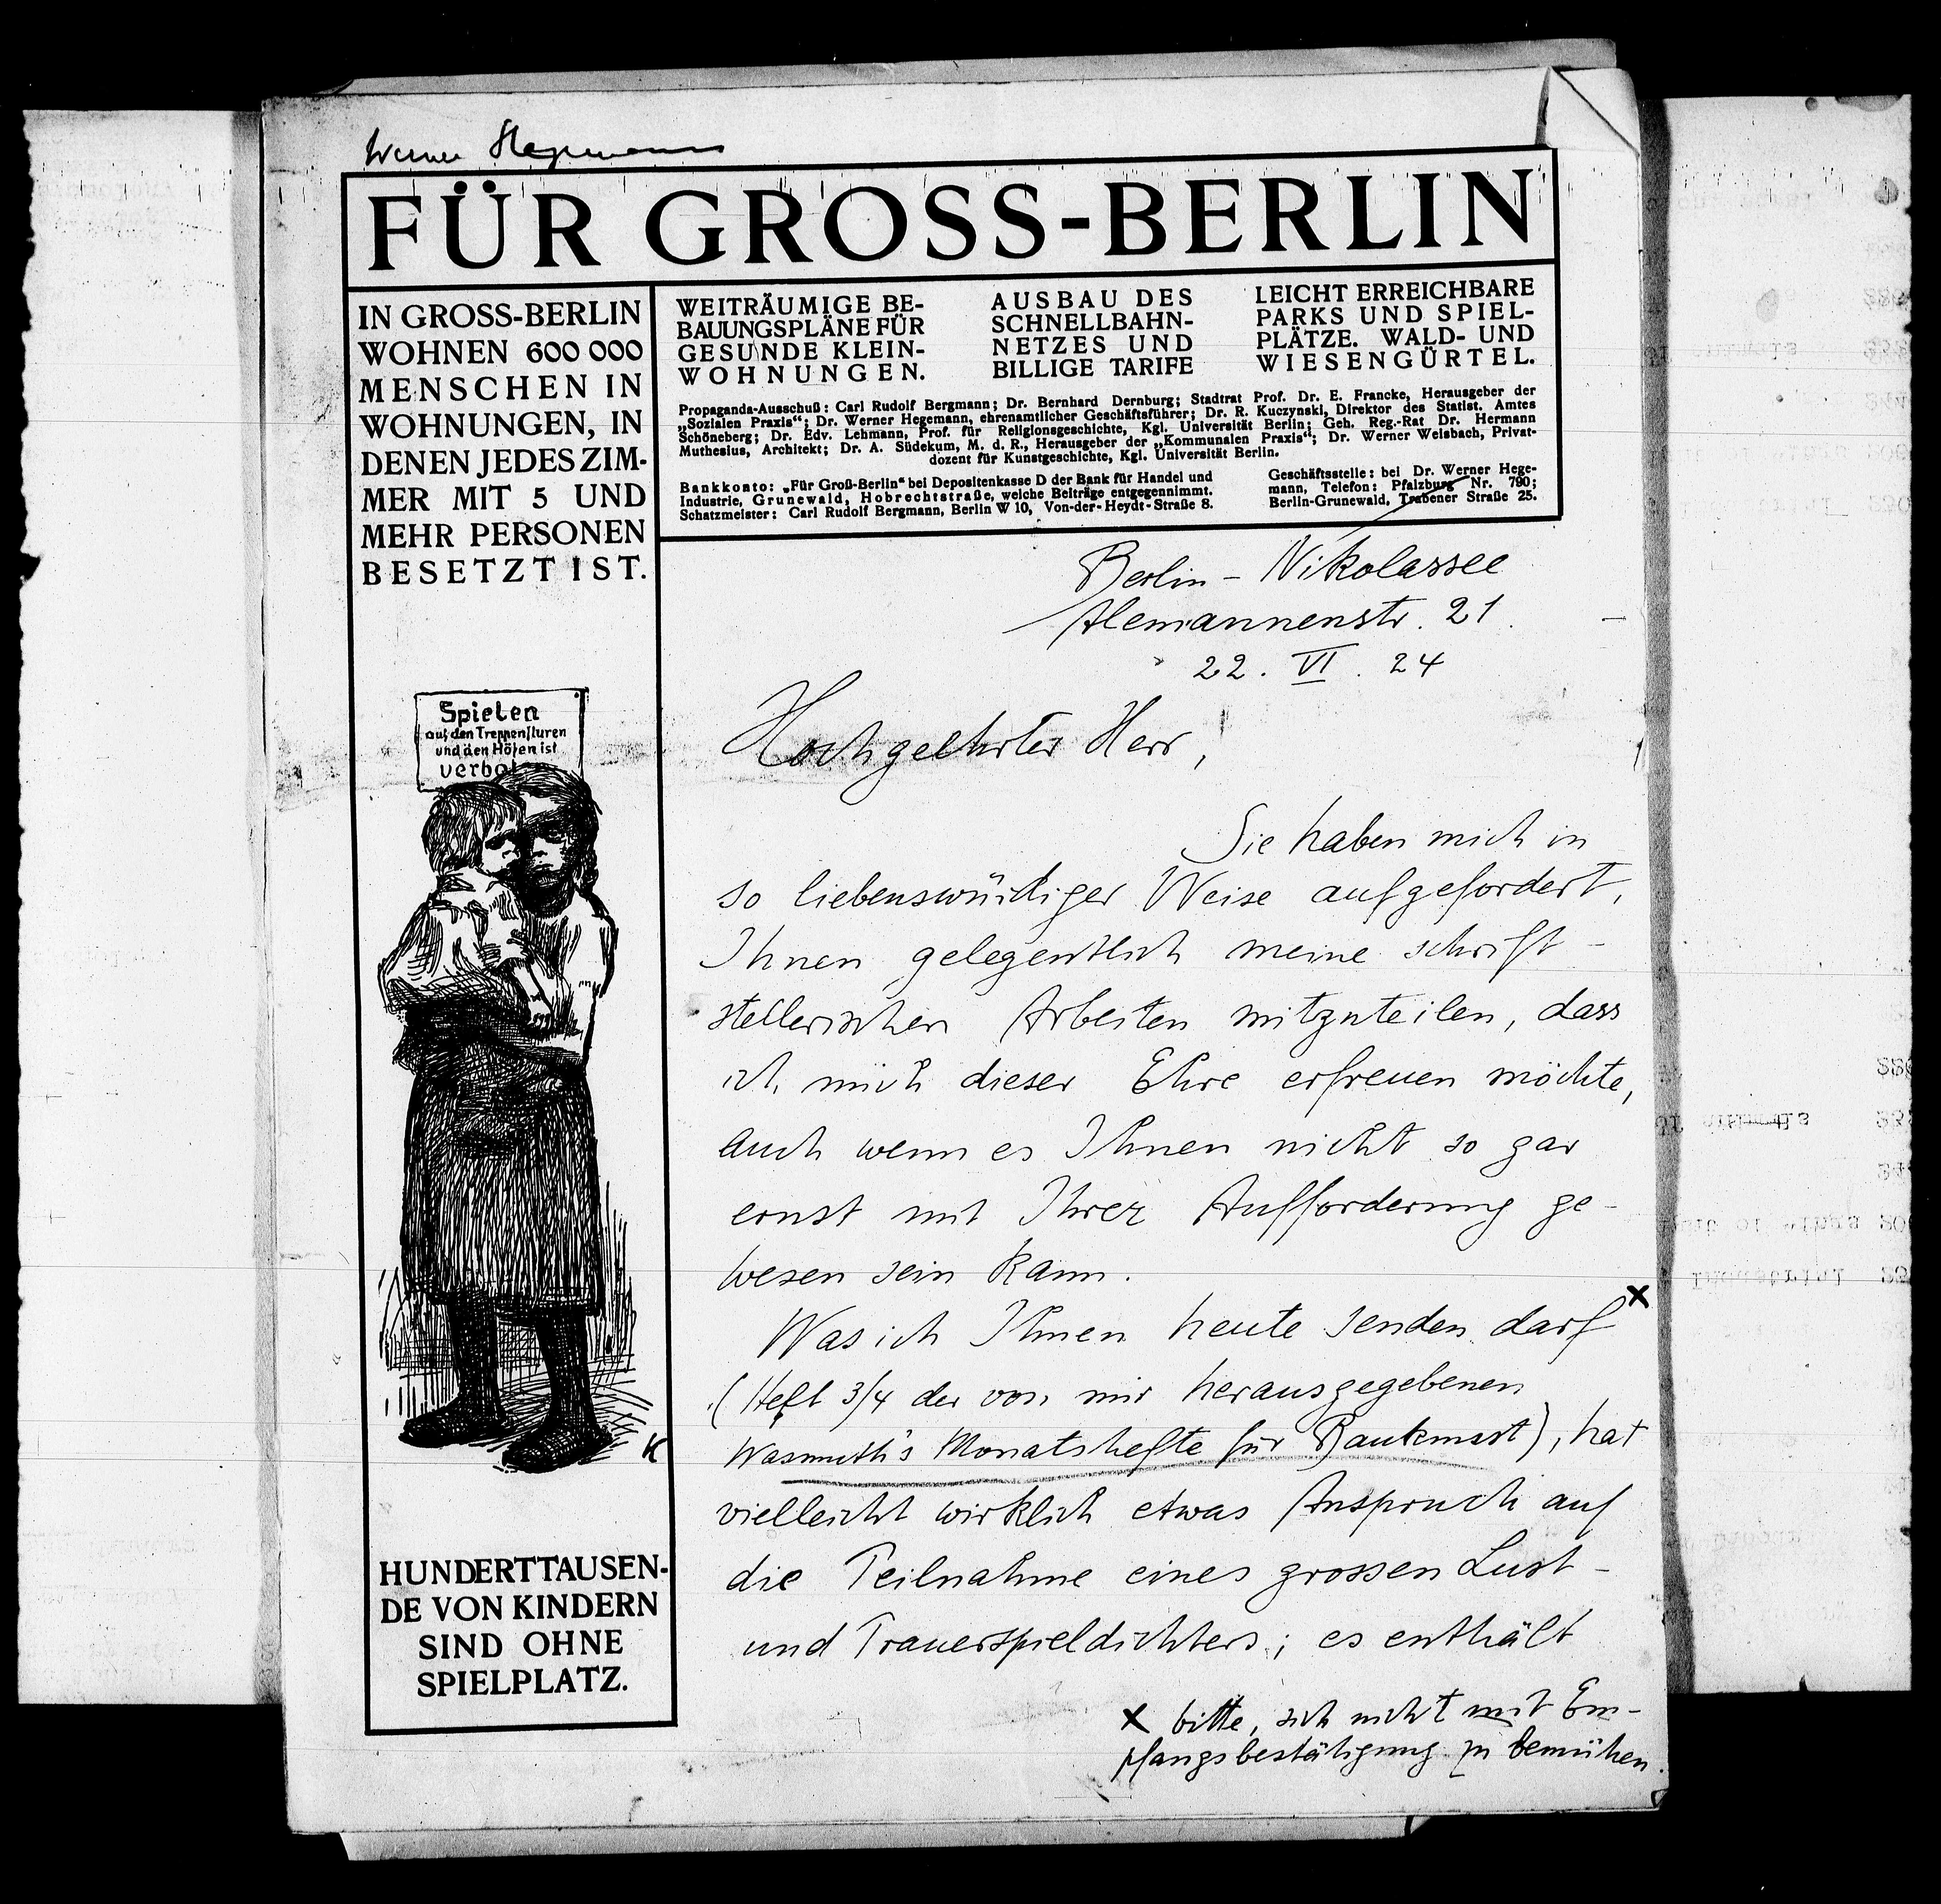 Werner Hegemann
FÜR GROSS-BERLIN
IN GROSS-BERLIN
WOHNEN 600 000
MENSCHEN IN
WOHNUNGEN, IN
DENEN JEDES ZIM-
MER MIT 5 UND
MEHR PERSONEN
BESETZT IST.
WEITRÄUMIGE BE-
BAUUNGSPLÄNE FÜR
GESUNDE KLEIN-
WOHNUNGEN.
AUSBAU DES
SCHNELLBAHN-
NETZES UND
BILLIGE TARIFE
LEICHT ERREICHBARE
PARKS UND SPIEL-
PLÄTZE. WALD- UND
WIESENGÜRTEL.
Propaganda-Ausschuß: Carl Rudolf Bergmann; Dr. Bernhard Dernburg; Stadtrat Prof. Dr. E. Francke, Herausgeber der
„Sozialen Praxis“; Dr. Werner Hegemann, ehrenamtlicher Geschäftsführer; Dr. R. Kuczynski, Direktor des Statist. Amtes
Schöneberg; Dr. Edv. Lehmann, Prof. für Religionsgeschichte, Kgl. Universität Berlin; Geh. Reg.-Rat Dr. Hermann
Muthesius, Architekt; Dr. A. Südekum, M. d. R., Herausgeber der „Kommunalen Praxis“; Dr. Werner Weisbach, Privat-
dozent für Kunstgeschichte, Kgl. Universität Berlin.
Bankkonto: „Für Groß-Berlin“ bei Depositenkasse D der Bank für Handel und
Industrie, Grunewald, Hobrechtstraße, welche Beiträge entgegennimmt.
Schatzmeister: Carl Rudolf Bergmann, Berlin W 10, Von-der-Heydt-Straße 8.
Geschäftsstelle: bei Dr. Werner Hege-
mann, Telefon: Pfalzburg Nr. 790;
Berlin-Grunewald, Trabener Straße 25.
Berlin - Nikolassee
Alemannenstr. 21.
22. VI. 24
Hochgeehrter Herr,
Sie haben mich in
so liebenswürdiger Weise aufgefordert,
Ihnen gelegentlich meine schrift-
stellerischen Arbeiten mitzuteilen, dass
ich mich dieser Ehre erfreuen möchte,
auch wenn es Ihnen nicht so gar
ernst mit Ihrer Aufforderung ge-
wesen sein kann.
Was ich Ihnen heute senden darf x
(Heft 3/4 der von mir herausgegebenen
Wasmuth's Monatshefte für Baukunst), hat
vielleicht wirklich etwas Anspruch auf
die Teilnahme eines grossen Lust-
und Trauerspieldichters; es enthält
x bitte, sich nicht mit Em-
pfangsbestätigung zu bemühen.
Spielen
auf den Treppenfluren
und den Höfen ist
verbo
K
HUNDERTTAUSEN-
DE VON KINDERN
SIND OHNE
SPIELPLATZ.